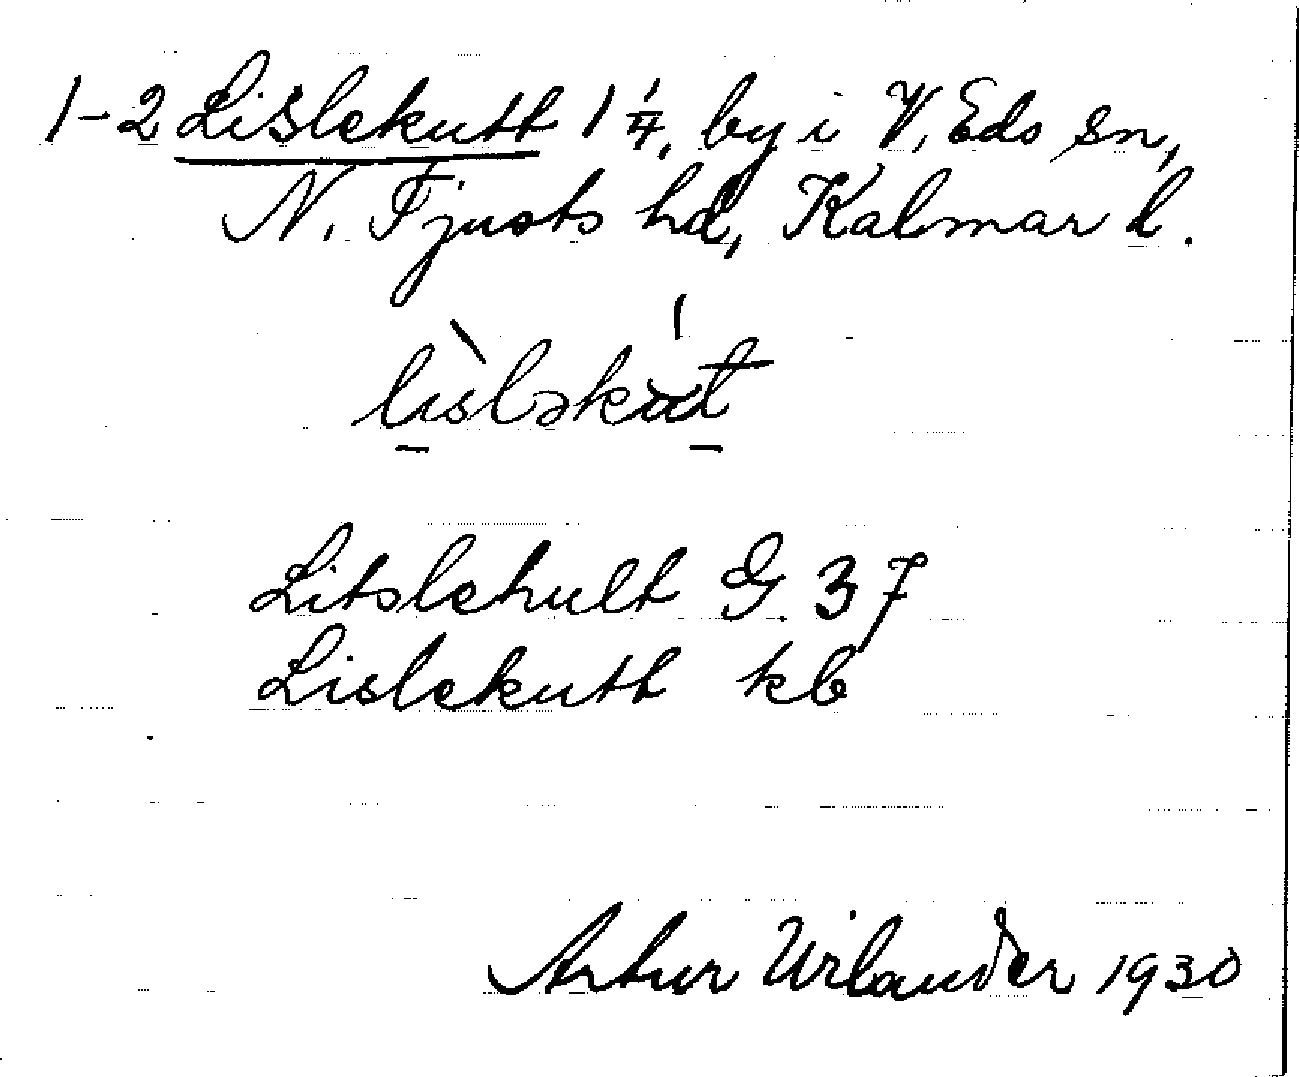 1-2 Lislekutt 1 1/4, by i V. Eds sn,
N. Tjusts hd, Kalmar l.
lìsləkát
Litslehult G. 37
Lislekutt kb
Artur Urlander 1930